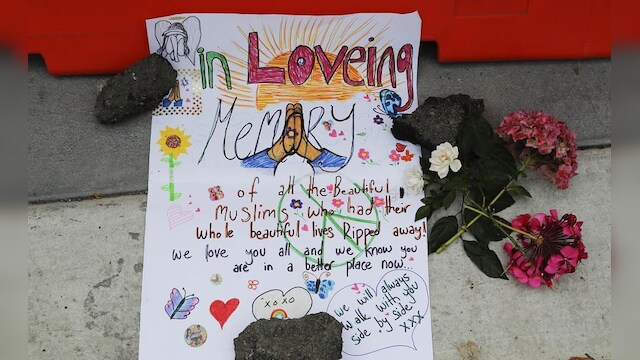 in Loveing
Memory
of all the Beautiful
Muslims who had their
whole beautiful lives Ripped away!
we love you all and we know you
are in a better place now...
xoxo
we will always
walk with you
side by side
xxx